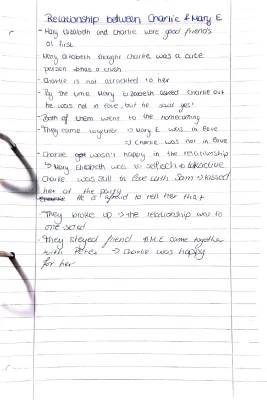 Relationship between Charlie & Mary E
- Mary Elizabeth and Charlie were good friends
at first
- Mary Elizabeth thought Charlie was a cute
person + has a crush
- Charlie is not attracted to her
- By the time Mary Elizabeth asked Charlie out
he was not in love, but he said yes!
- Both of them went to the homecoming
- They came together → Mary E. was in love
→ Charlie was not in love
- Charlie wasn't happy in the relationship
↳ Mary Elizabeth was so selfish +
Charlie was still in love with Sam → kissed
her at the party
He is afraid to tell her that
- They broke up → the relationship was to
one sided
- They stayed friend M.E came together
with Peter → Charlie was happy
for her